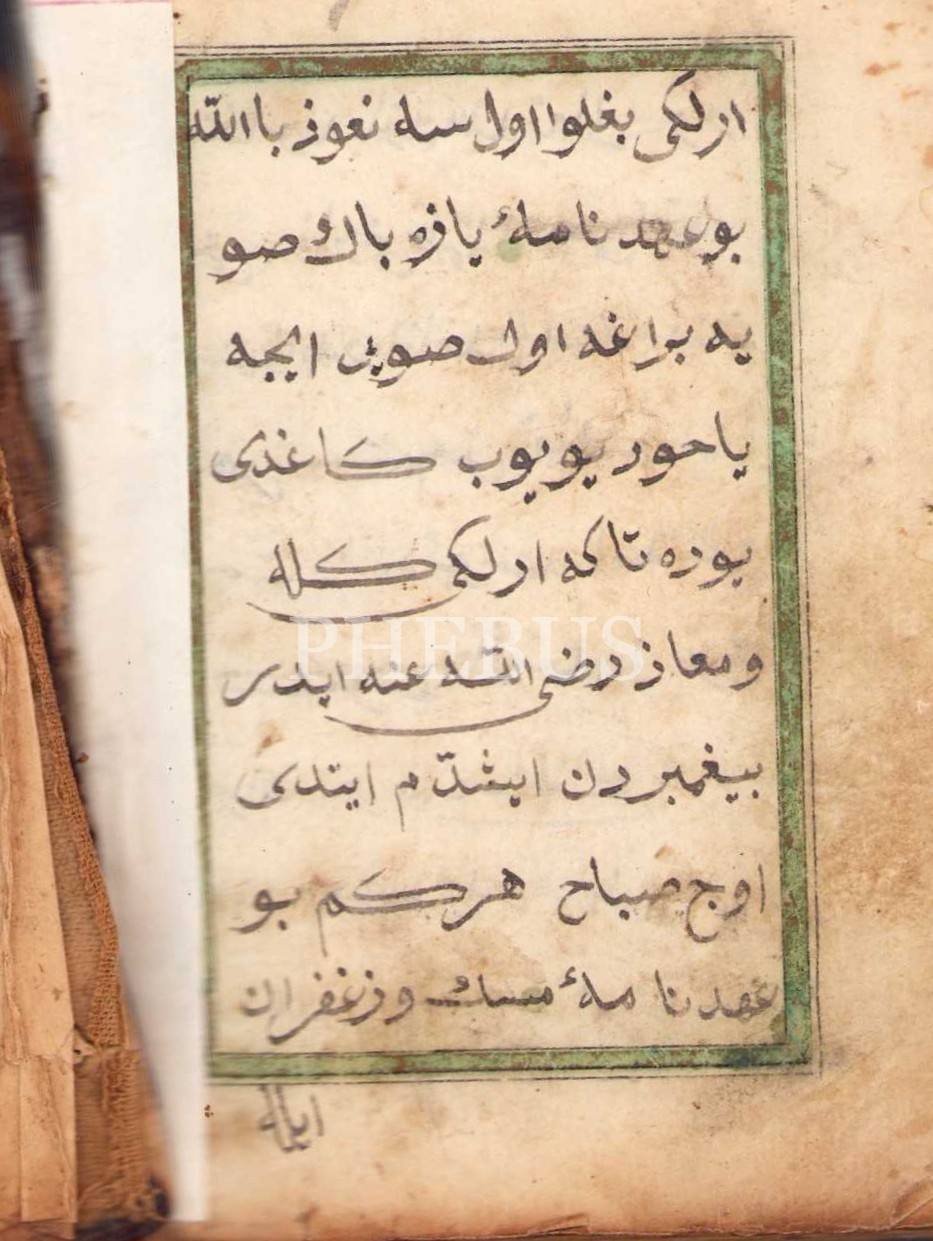 ارلكى بغلوا اول سه نعوذ باالله
بو عهد نامهٔ يازه باك صو
يه براغه اول صويى ايچه
ياخود يويوب كاغدى
يوره تاكمه ارلكى كله
ومعاذ رضى الله عنه ايدر
بيغمبردن ايشدّم ايتدى
اوج صباح هركم بو
عهدنا مهٔ مسك وزغفران
ايله
PHEBUS